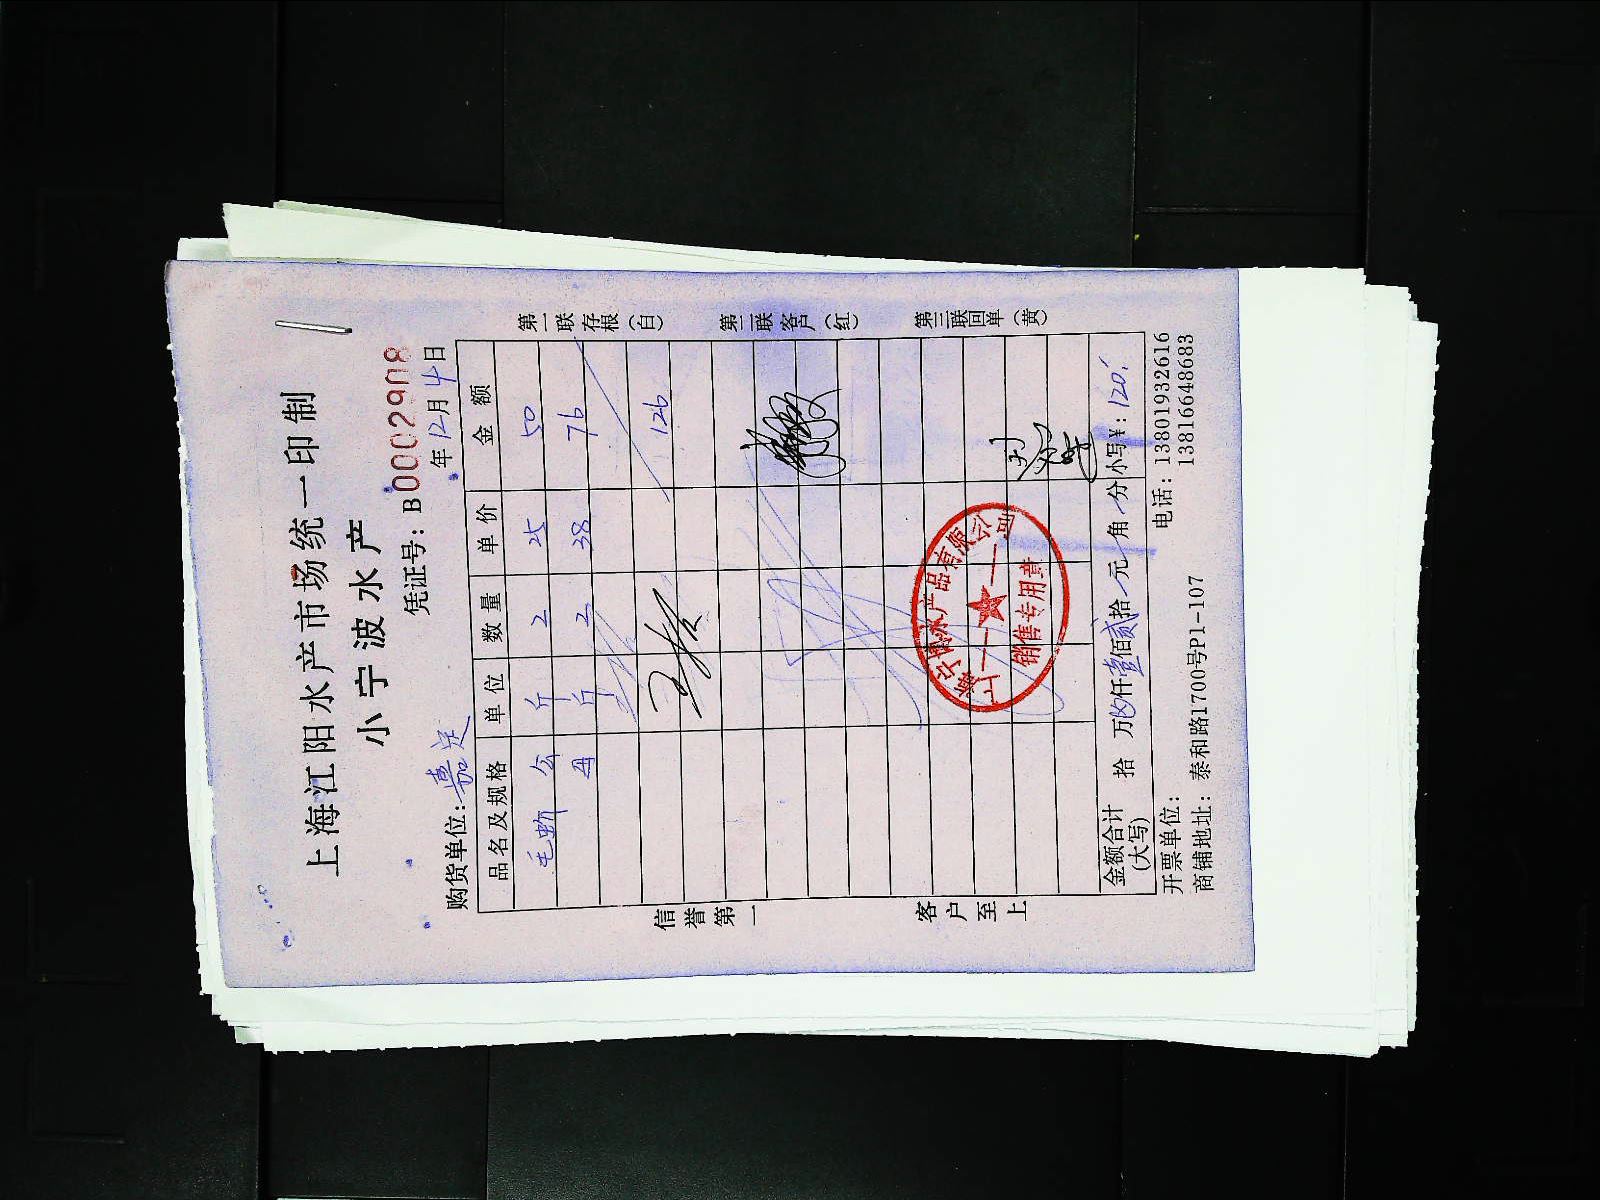 上海江阳水产市场统一印制
小宁波水产
凭证号：B0002908
购货单位：嘉定 年12月4日
品名及规格 单位 数量 单价 金额
毛蚶 公 斤 2 25 50
母 斤 2 38 76
126
第一联存根（白）
第二联客户（红）
第三联回单（黄）
信誉第一
客户至上
水产品有限公司
销售专用章
金额合计（大写） 拾 万 仟壹佰贰拾 元 角 分 小写¥：120.
开票单位： 电话：13801932616
商铺地址：泰和路1700号P1-107 13816648683